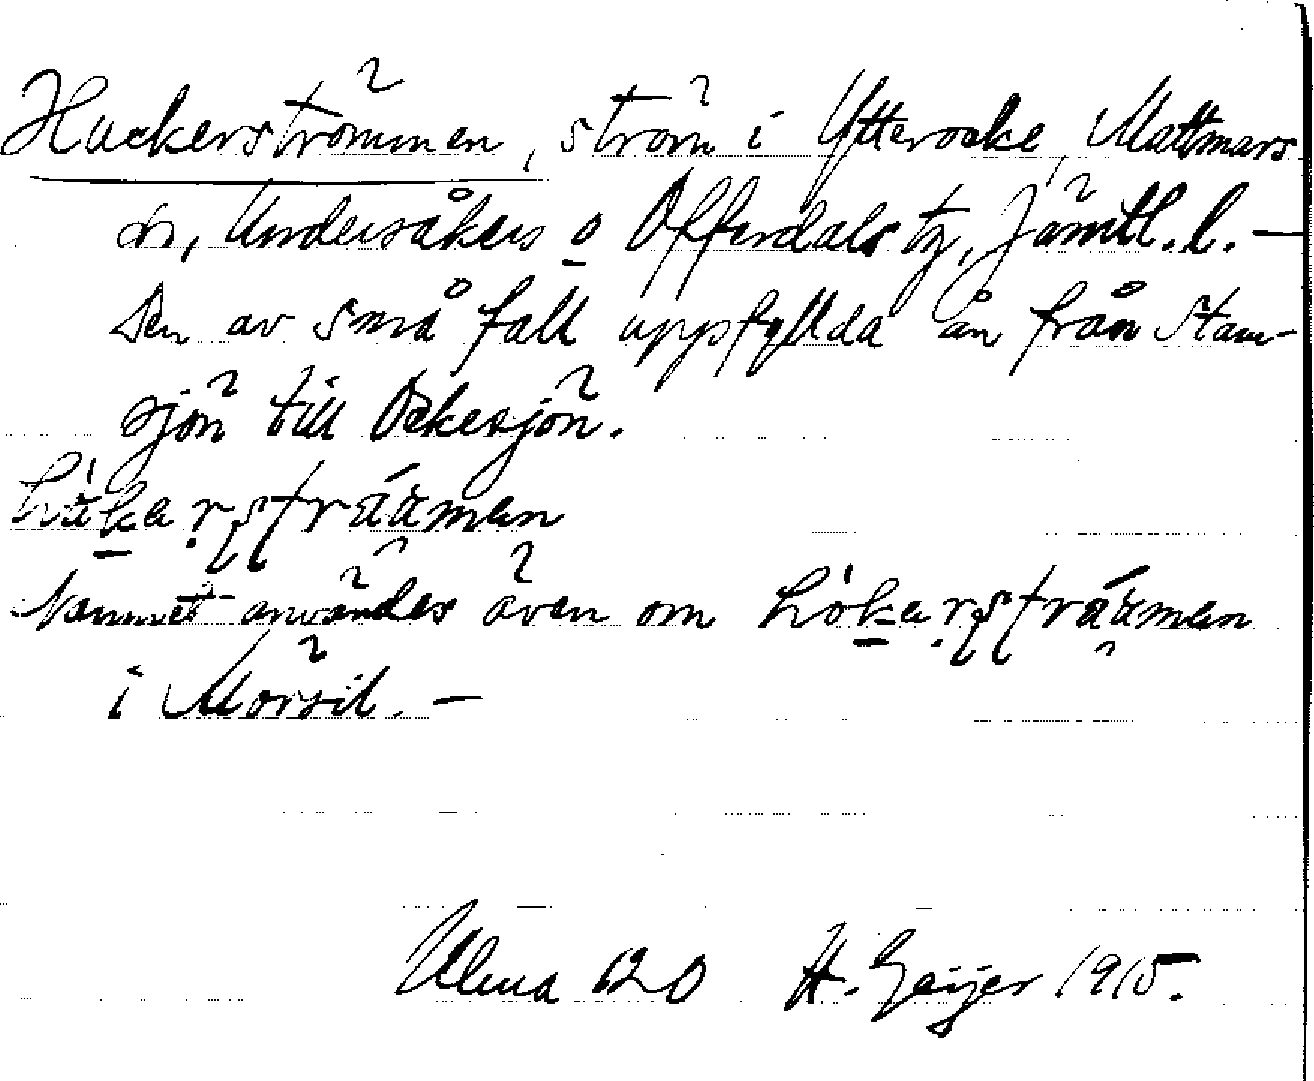 Hackerströmmen, ström i Ytterocke, Mattmars
sn, Undersåkers o Offerdals tg, Jämtl. l. —
Den av små fall uppfyllda ån från Stam-
sjön till Ockesjön.
Namnet användes även om
i Mörsil. —
Ulma 620 H. Geijer 1915.